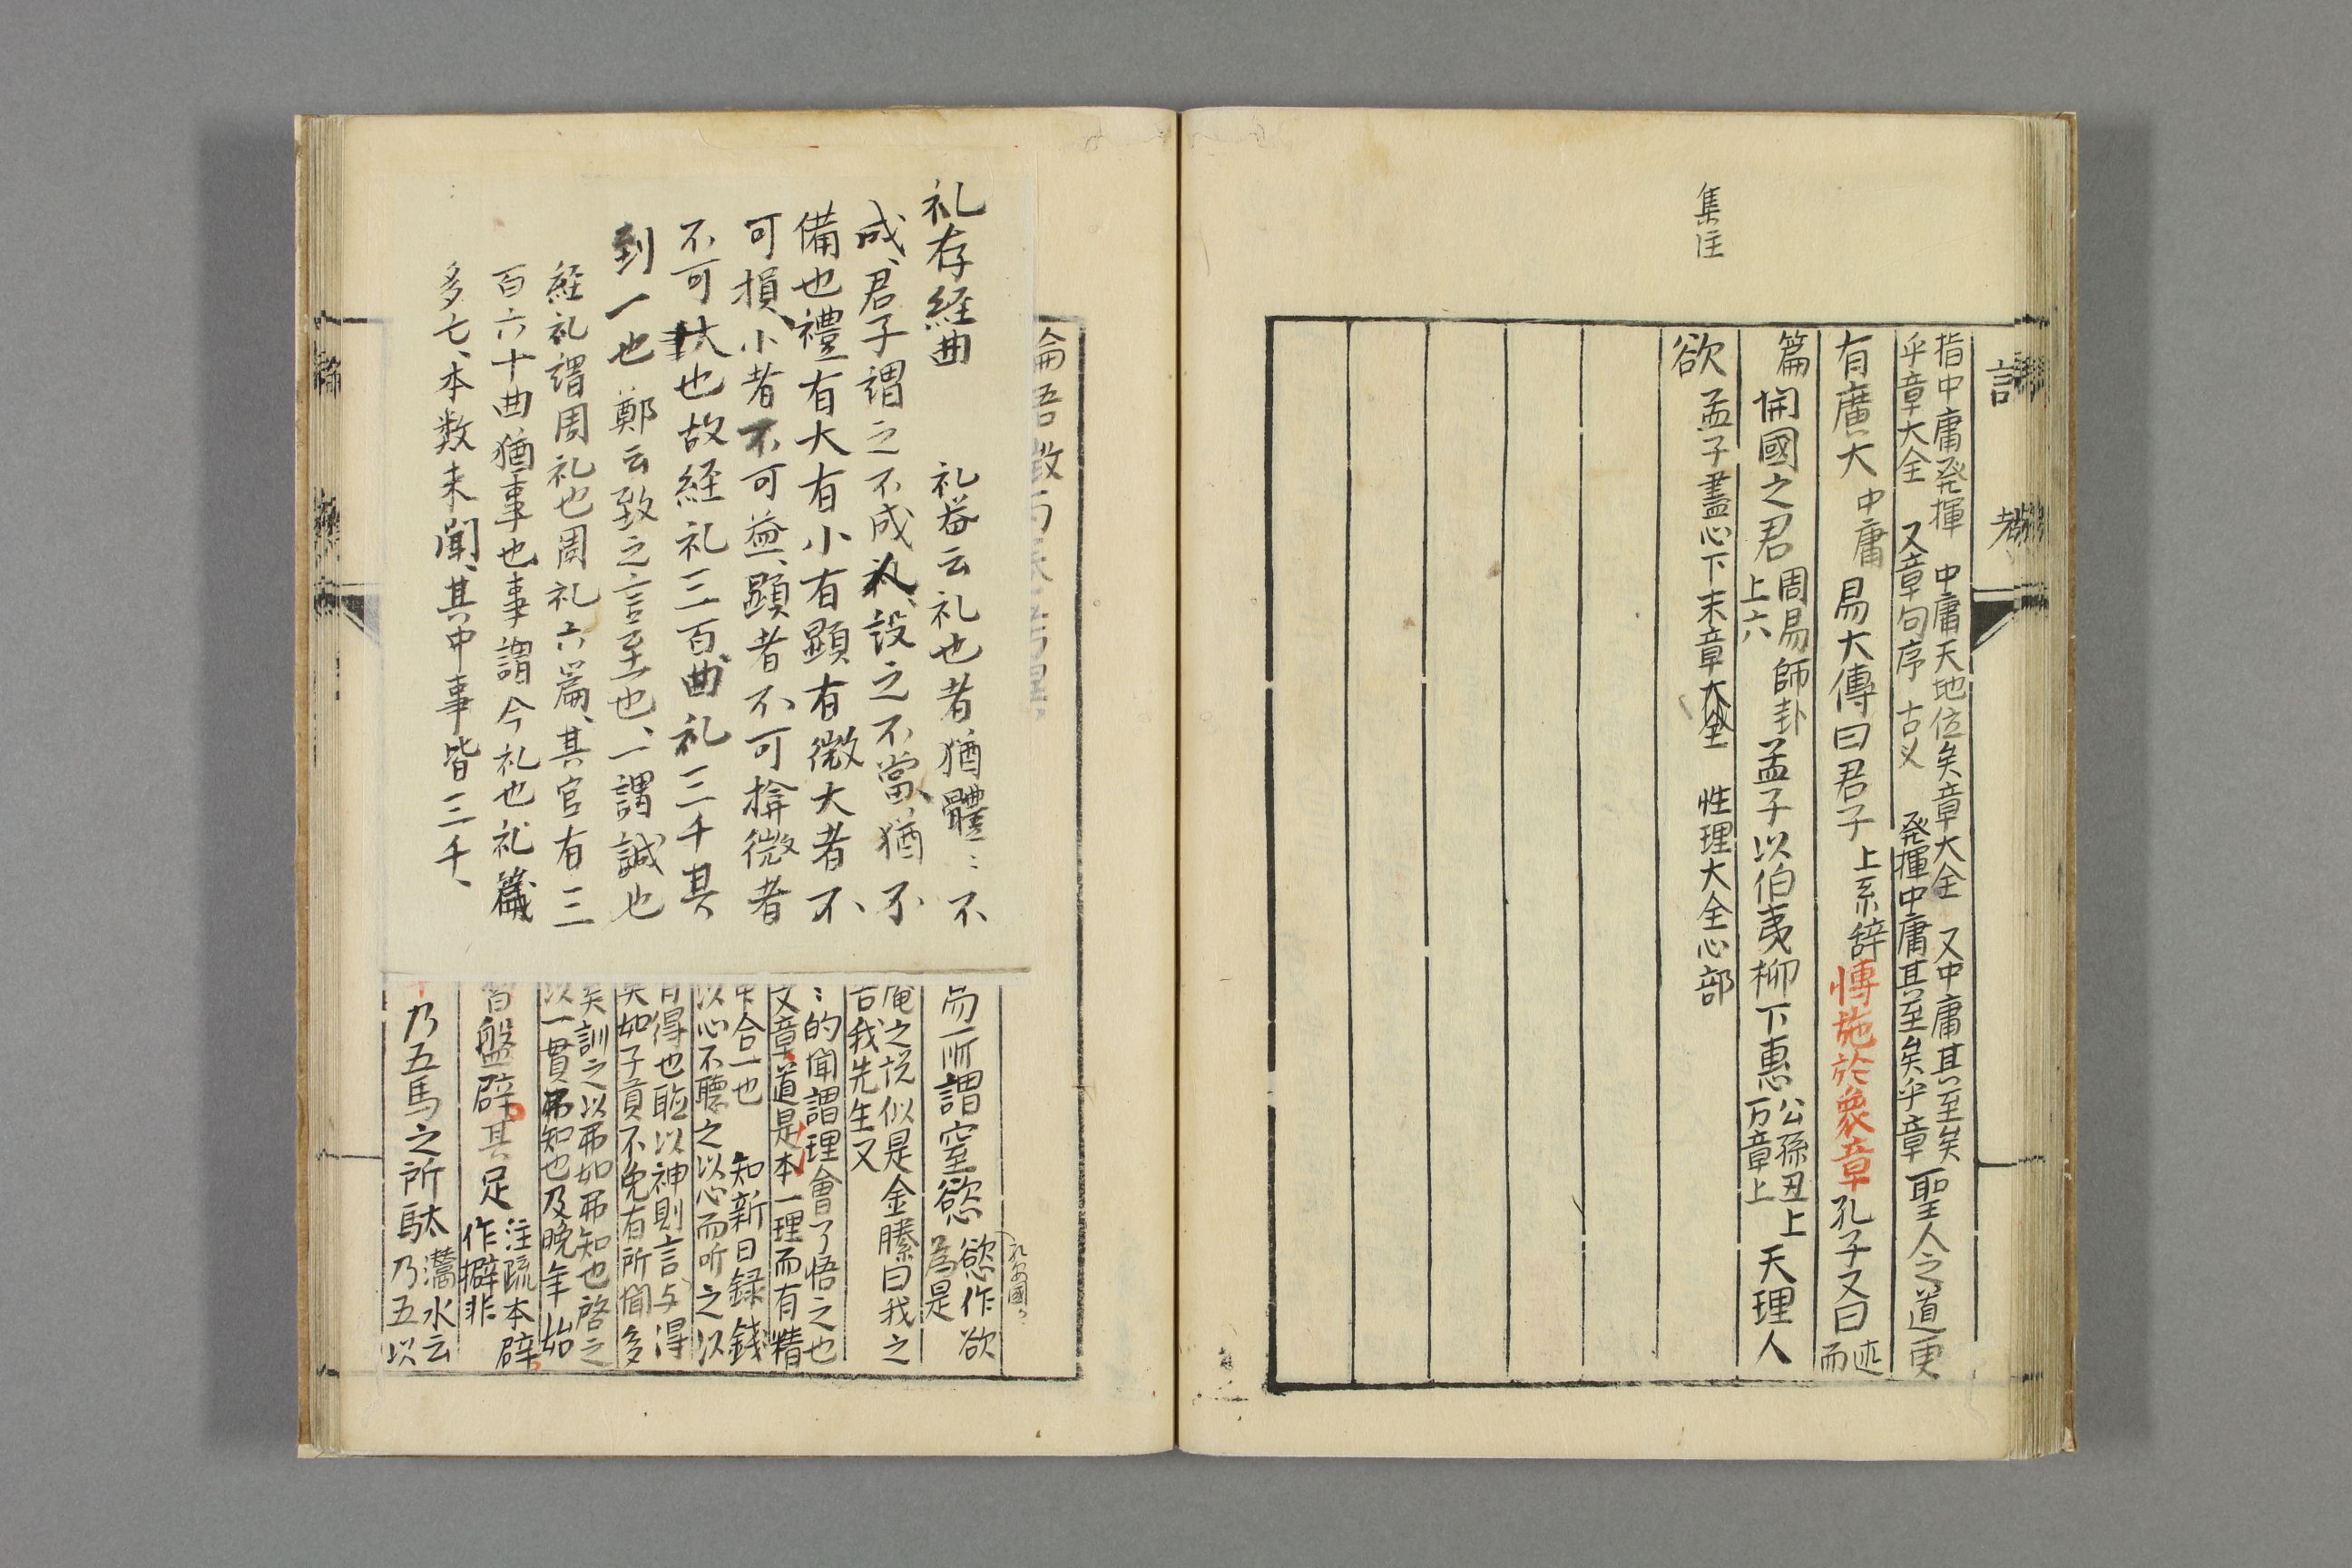 集注
指中庸発揮 中庸天地位矣章大全 又中庸其至矣
乎章大全 又章句序 古义 発揮中庸其至矣乎章
聖人之道更
有廣大 中庸 易大傳曰君子 上系辞 博施於衆章 孔子又曰 迹而
篇 開國之君 周易師卦上六 孟子以伯夷柳下惠 公孫丑上万章上 天理人
欲 孟子盡心下末章大全 性理大全心部
礼存経曲 礼器云礼也者猶體〻不
成、君子謂之不成人、設之不當、猶不
備也禮有大有小有顕有微大者不
可損、小者不可益、顕者不可揜微者
不可大也故経礼三百曲礼三千其
到一也 鄭云致之言至也、一謂誠也
経礼謂周礼也周礼六篇、其官有三
百六十曲猶事也事謂今礼也礼篇
多亡、本数未聞、其中事皆三千、
而所謂窒慾 慾作欲為是
孔安國〻
庵之説似是 金縢曰我之
吾我先生又
〻的聞謂理會了悟之也
文章道是本一理而有精
合一也 知新日録 錢
以心不聽之以心而听之以
得也聆以神則言与得
如子貢不免有所聞多
矣訓之以弗如弗知也啓之
以一貫弗知也及晩年始
盤辟其足 注疏本辟作擗非
乃五馬之所馱 灊水云乃五以